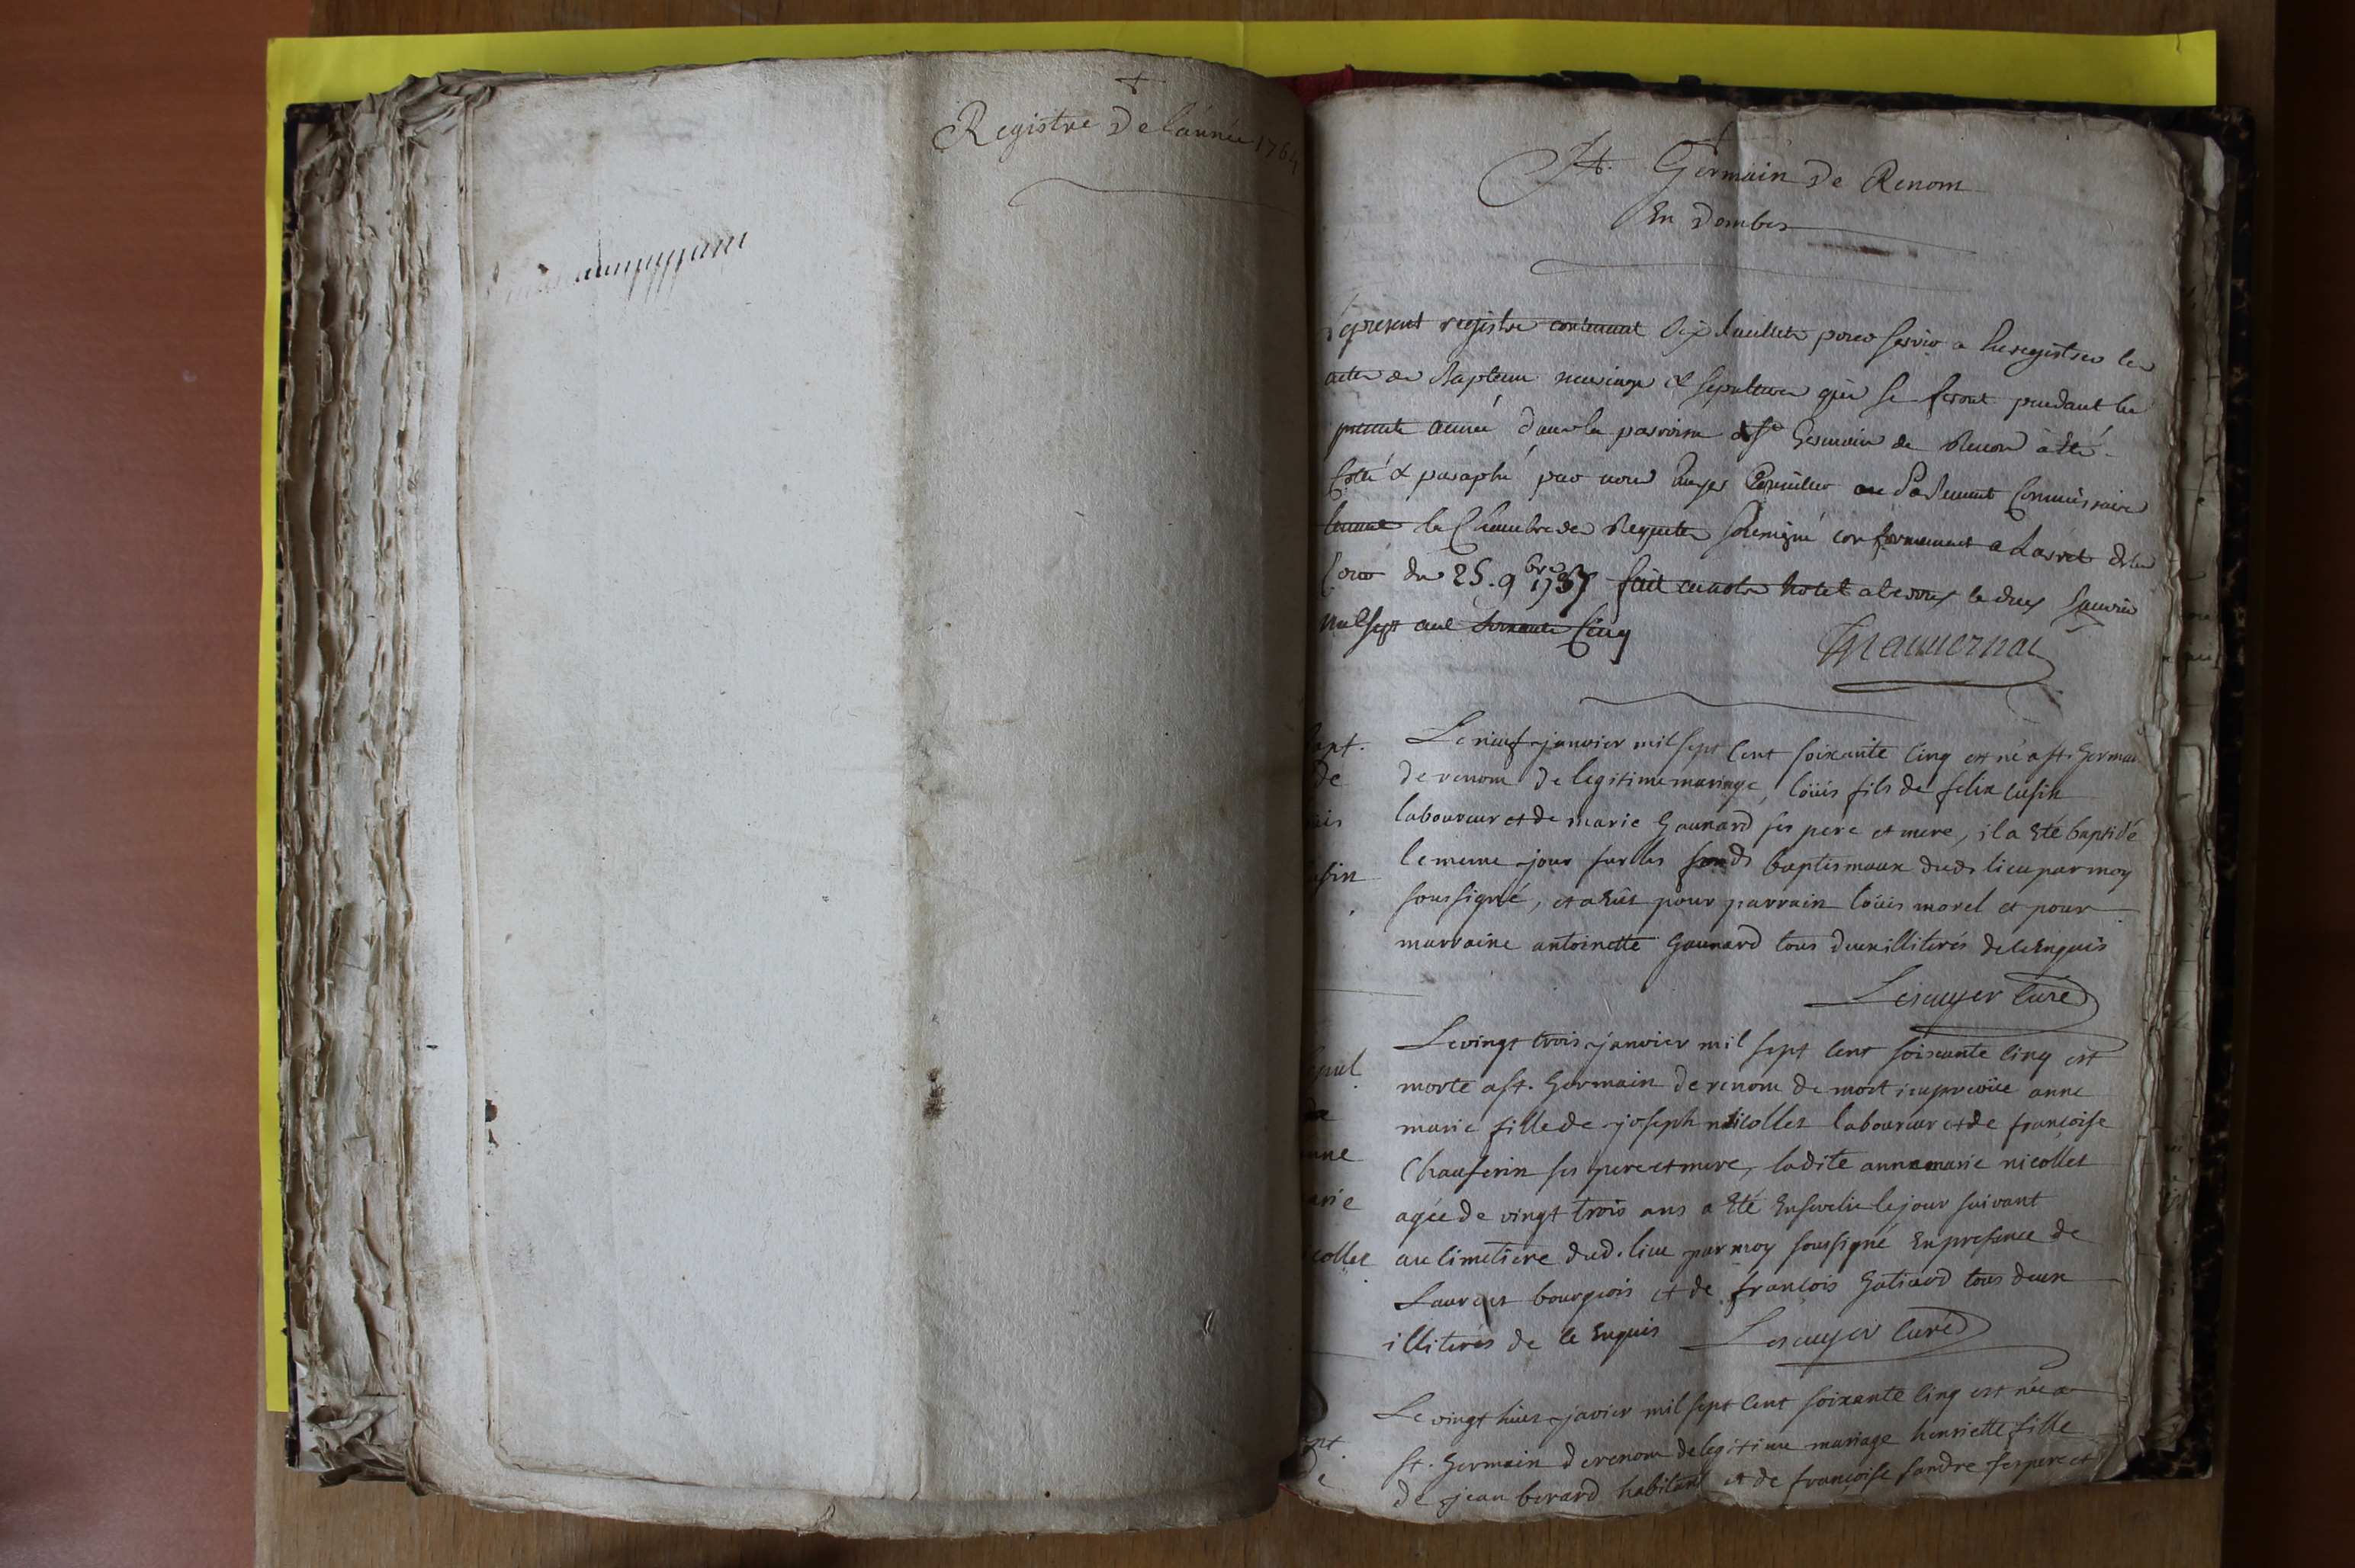 Registre de l'année 1764
St. Germain de Renom
En Dombes
present registre contenant six feuillets pour servir a Enregistrer les
actes de Bapteme mariage et sepulture qui se feront pendant la
presente année dans la paroisse de St Germain de Renom a été
Cotté & paraphé par nous Conseiller au Parlement Commissaire
la Chambre des Requetes soussigné conformement a Larret de la
Cour du 25. 9bre 1737 fait en notre hotel a le dix Janvier
mil sept cent soixante Cinq
bapt.
de
Le neuf janvier mil sept cent soixante cinq est né a st. Germain
de renom de legitime mariage, loüis fils de felix cusin
laboureur et de marie Gaunard ses pere et mere, il a été baptisé
le meme jour sur les fonds baptismaux dud. lieu par moy
soussigné, et a eût pour parrain loüis morel et pour
marraine antoinette Gaunard tous deux illiterés de ce Enquis
Lescuyer Curé
Le vingt trois janvier mil sept cent soixante cinq est
morte a st. Germain de renom de mort imprevüe anne
marie fille de joseph nicollet laboureur et de françoise
Chauferin ses pere et mere, ladite anne marie nicollet
agée de vingt trois ans a été Ensevelie le jour suivant
au Cimetiere dud. lieu par moy soussigné En presence de
Laurent bourgeois et de françois Gatieud tous deux
illiterés de ce Enquis Lescuyer Curé
Le vingt huit javier mil sept cent soixante cinq est née a
st. Germain de renom de legitime mariage henriette fille
de jean berard habitant et de françoise sandre ses pere et